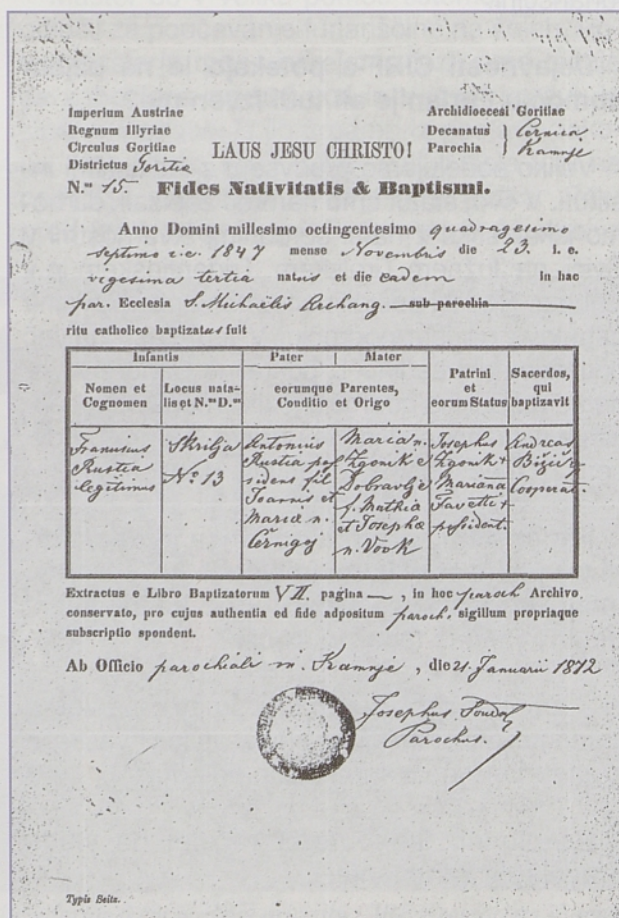 Imperium Austriae
Regnum Illyriae
Circulus Goritiae
Districtus Goritia
Archidioecesi Goritiae
Decanatus Cernica
Parochia Kamnje
LAUS JESU CHRISTO!
N.us 15. Fides Nativitatis & Baptismi.
Anno Domini millesimo octingentesimo quadragesimo
septimo i.e. 1847 mense Novembris die 23. i. e.
vigesima tertia natus et die eadem in hac
par. Ecclesia S. Michaëlis Archang. sub parochia
ritu catholico baptizatus fuit
Infantis Pater Mater Patrini et eorum Status Sacerdos, qui baptizavit
Nomen et Cognomen Locus natalis et N.us D.us eorumque Parentes, Conditio et Origo
Franciscus
Rustia
legitimus
Skrilja
No. 13
Antonius
Rustia pos
sidens fil
Joannis et
Mariæ n.
Černigoj
Maria n.
Zgonik e
Dobravlje
f. Mathia
et Josephæ
n. Vovk
Josephus
Zgonik +
Mariana
+
possident.
Andreas
Cooperat.
Extractus e Libro Baptizatorum VII. pagina —, in hoc paroch Archivo
conservato, pro cujus authentia ed fide adpositum paroch. sigillum propriaque
subscriptio spondent.
Ab Officio parochiali in Kamnje, die 21. Januarii 1872
Josephus
Parochus.
Typis Seitz.